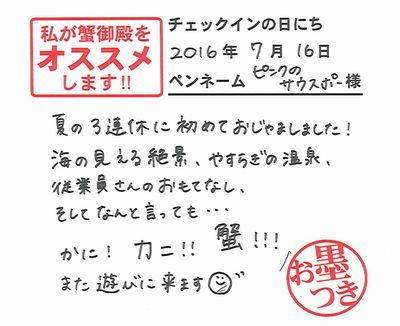 私が蟹御殿を
オススメ
します!!
チェックインの日にち
2016年 7月 16日
ペンネーム ピンクの
サウスポー様
夏の3連休に初めておじゃましました!
海の見える絶景、やすらぎの温泉、
従業員さんのおもてなし、
そしてなんと言っても・・・
かに! カニ!! 蟹!!!
また遊びに来ます
お墨
つき